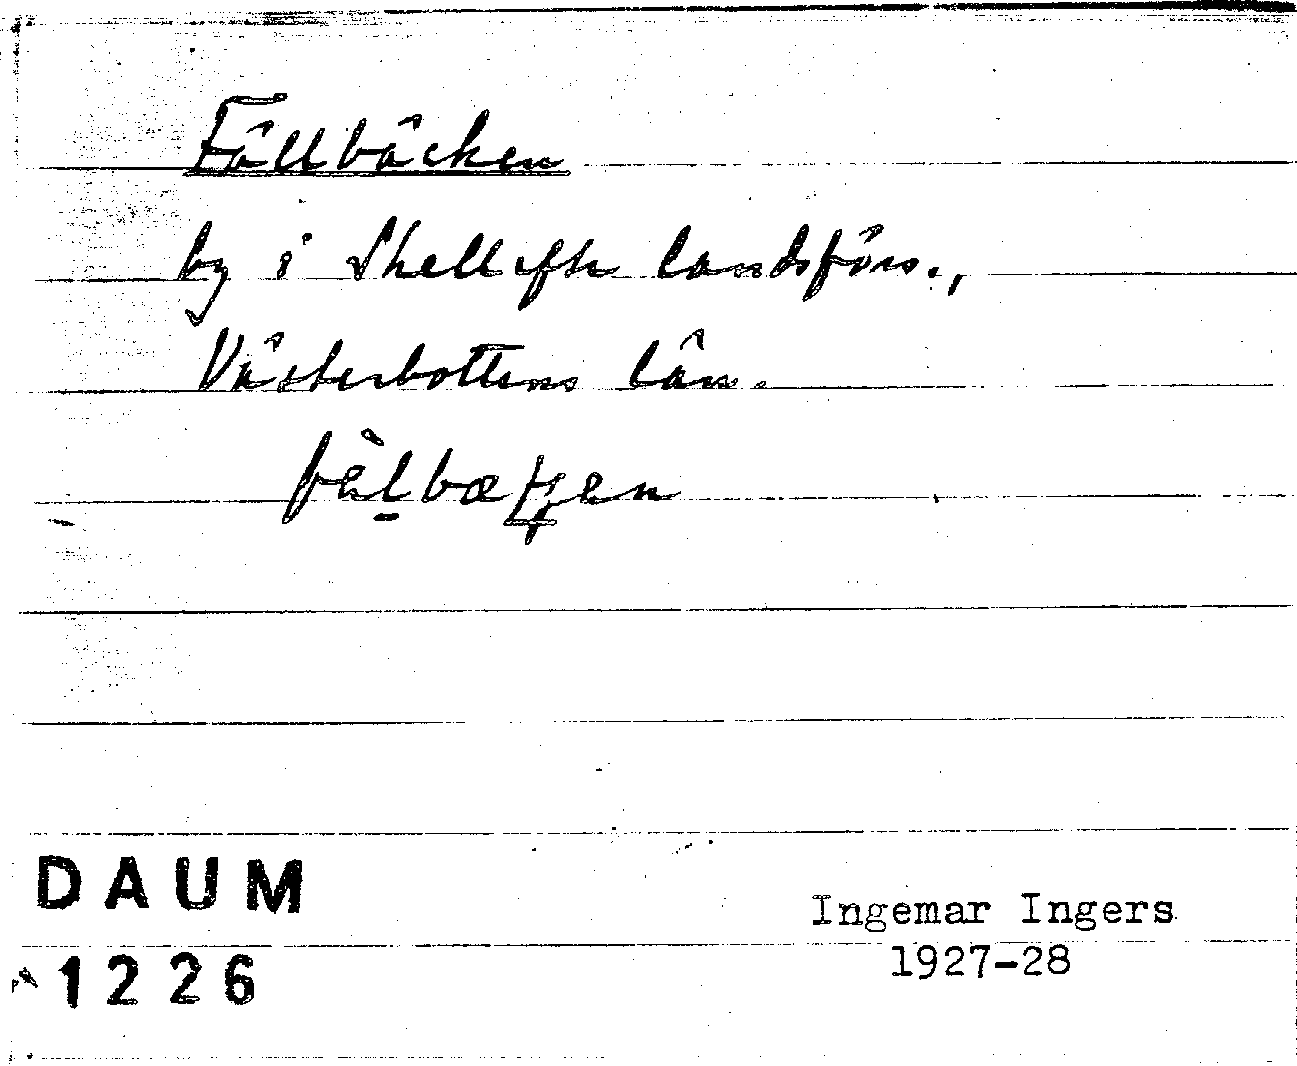 Fällbäcken
by i Skellefte landsförs.,
Västerbottens län.
DAUM
1226
Ingemar Ingers
1927-28